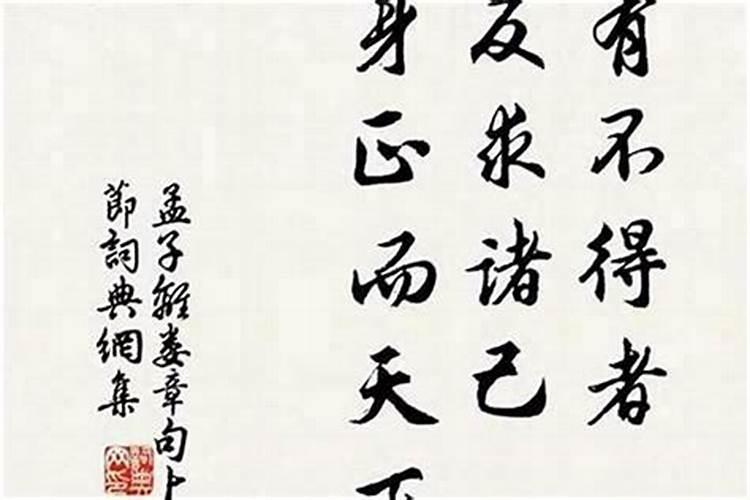 有不得者
反求诸己
身正而天下
孟子離娄章句上
節詞典網集